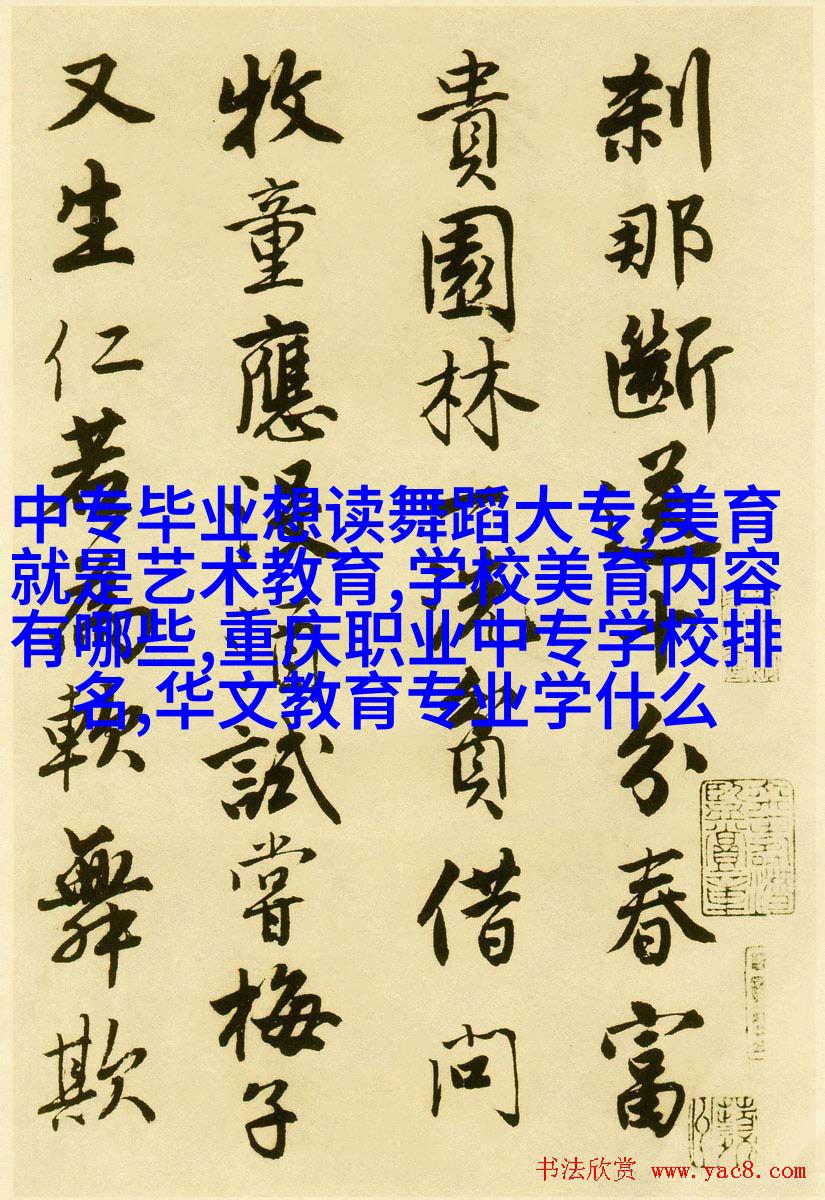 刹那斷送十分春富
貴園林一洗貧借問
牧童應沒酒試嘗梅子
又生仁若為軟舞欺
中专毕业想读舞蹈大专,美育
就是艺术教育,学校美育内容
有哪些,重庆职业中专学校排
名,华文教育专业学什么
书法欣赏 www.yac8.com